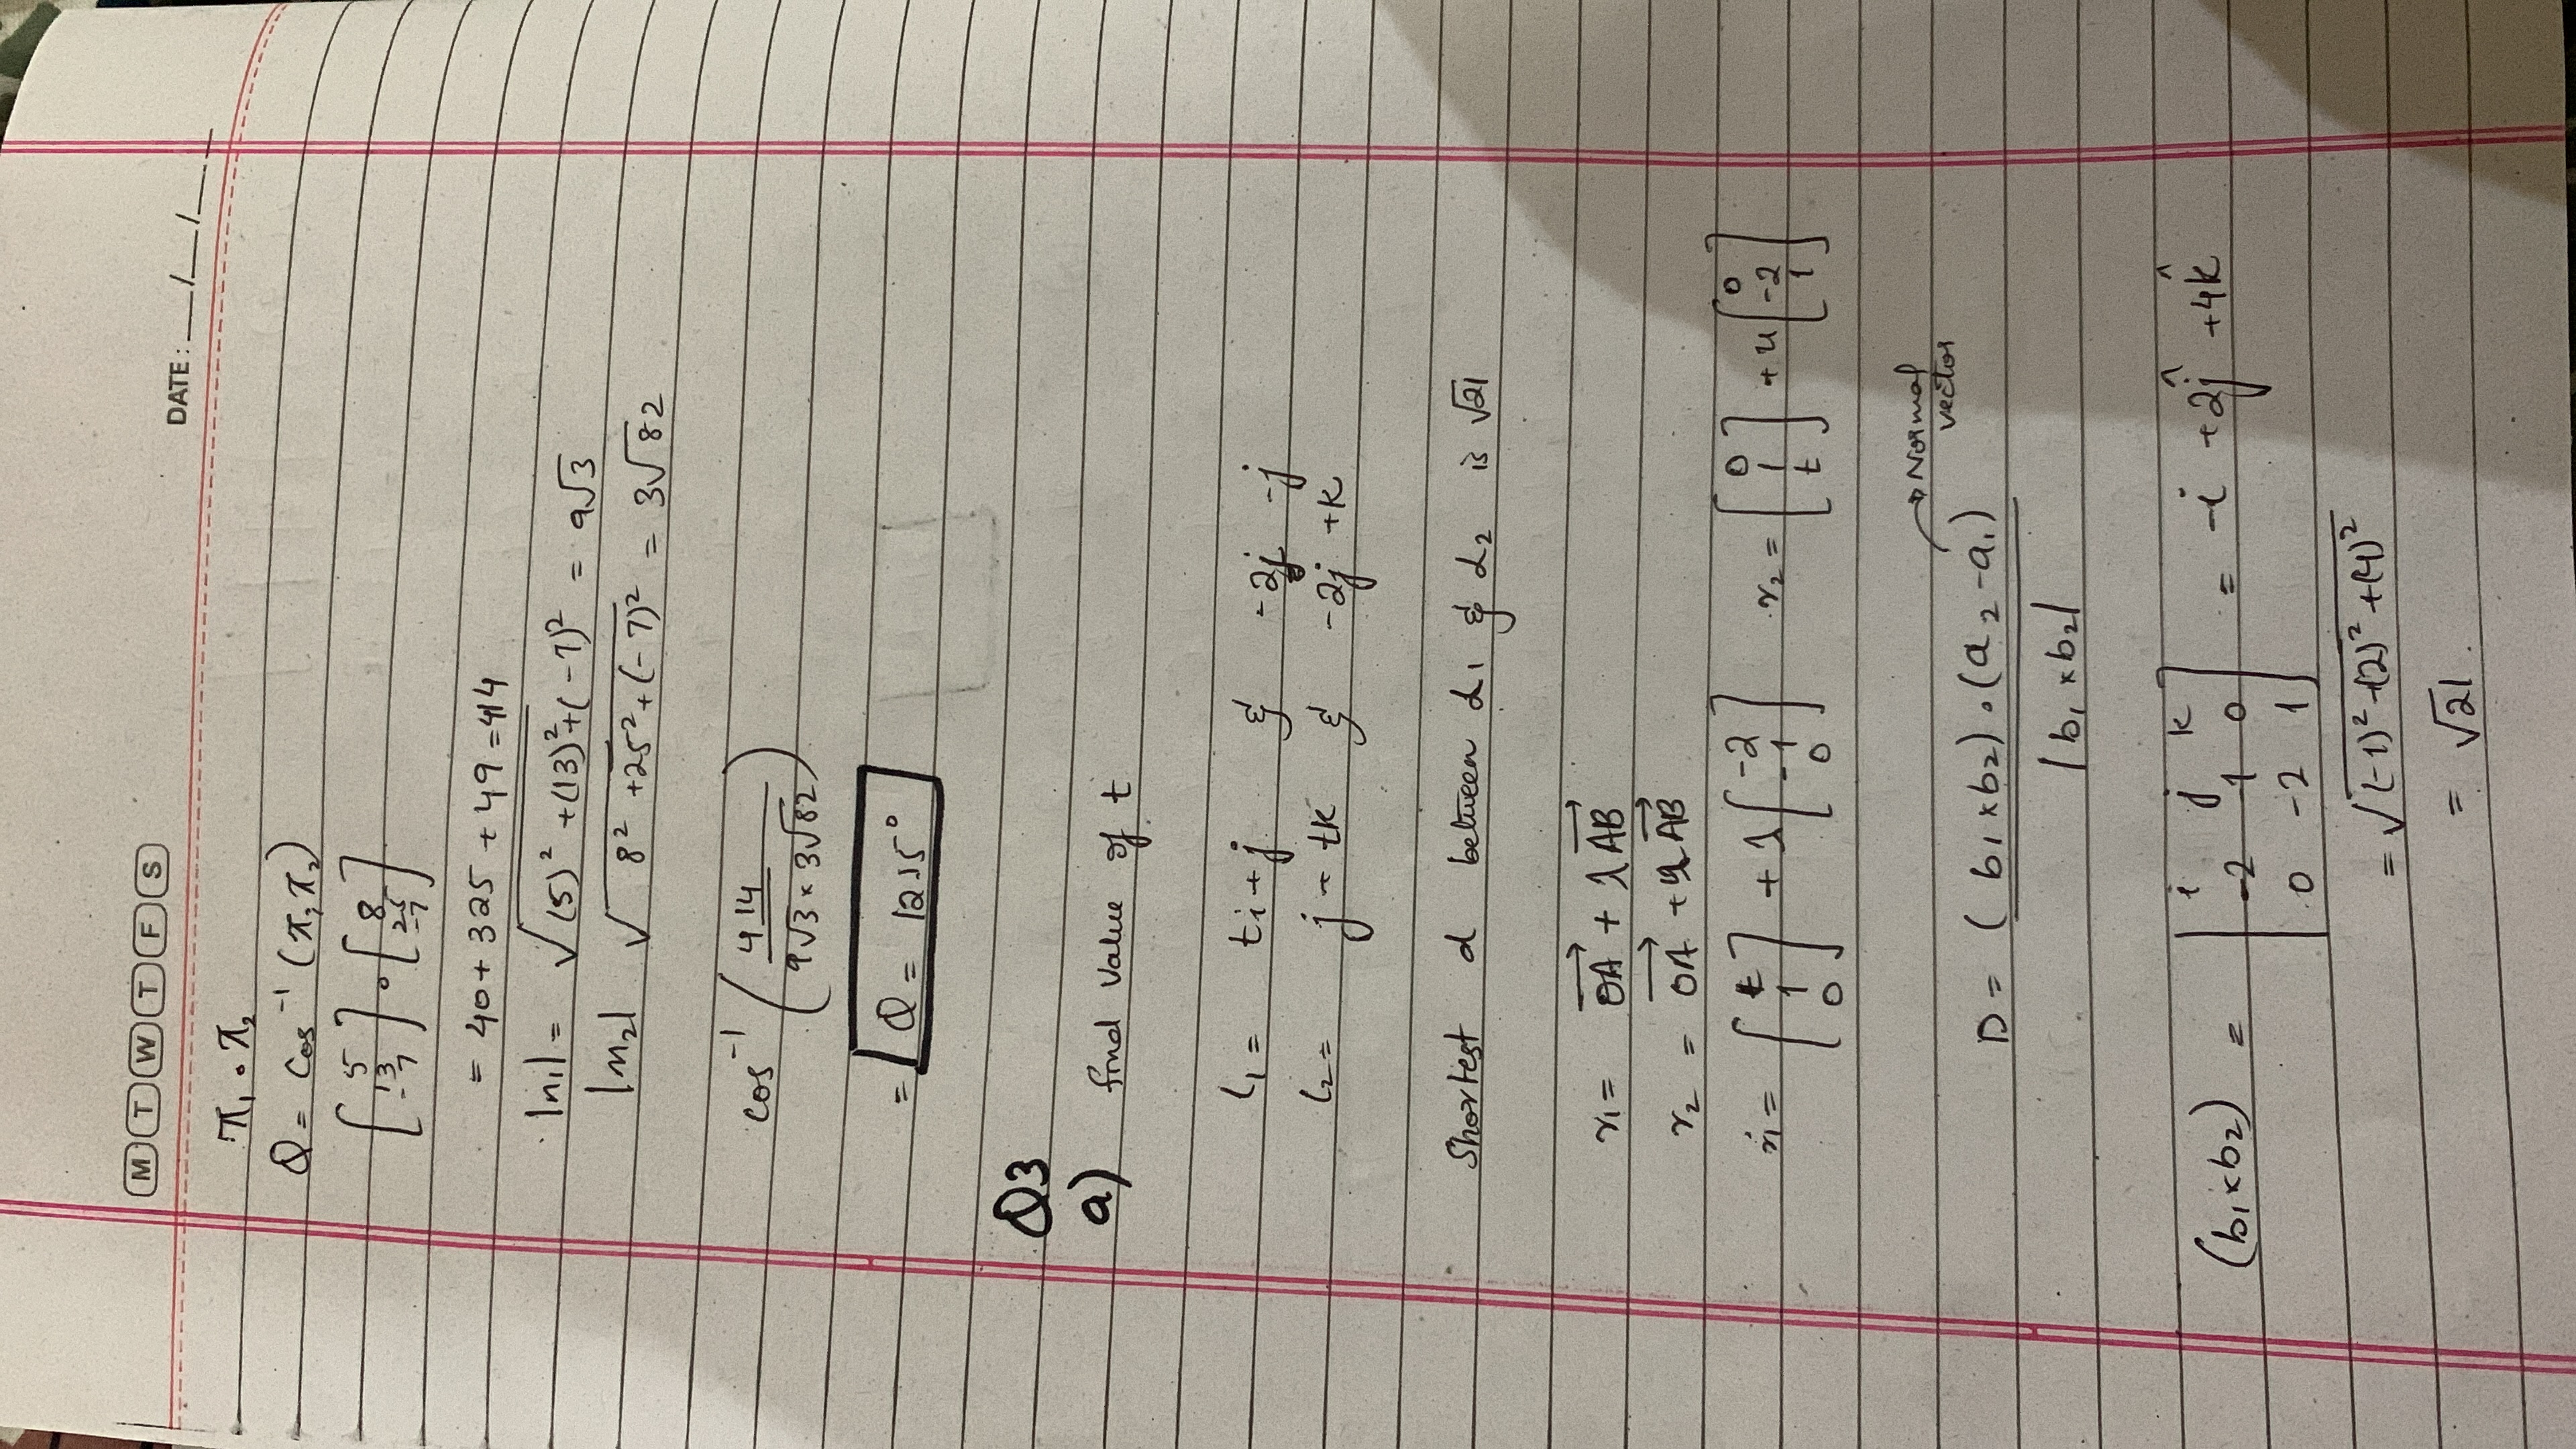 M T W T F S
DATE: __/__/__
π₁ · π₂
Q = Cos⁻¹ (π₁ π₂)
[5 13 -7] · [8 25 -7]
= 40 + 325 + 49 = 414
|n₁| = √(5)² + (13)² + (-7)² = 9√3
|n₂| √8² + 25² + (-7)² = 3√82
cos⁻¹ (414 / 9√3 × 3√82)
= Q = 12.15°
Q3
a) find value of t
l₁ = ti + j & -2j - j
l₂ = j + tk & -2j + k
Shortest d between L₁ & L₂ is √21
r₁ = OA + λ AB
r₂ = OA + μ AB
r₁ = [t 1 0] + λ [-2 -1 0] r₂ = [0 1 t] + u [0 -2 1]
→ Normal vector
D = (b₁ × b₂) · (a₂ - a₁) / |b₁ × b₂|
(b₁ × b₂) = | i j k
-2 -1 0
0 -2 1 | = -i + 2ĵ + 4k̂
= √(-1)² + (2)² + (4)²
= √21.